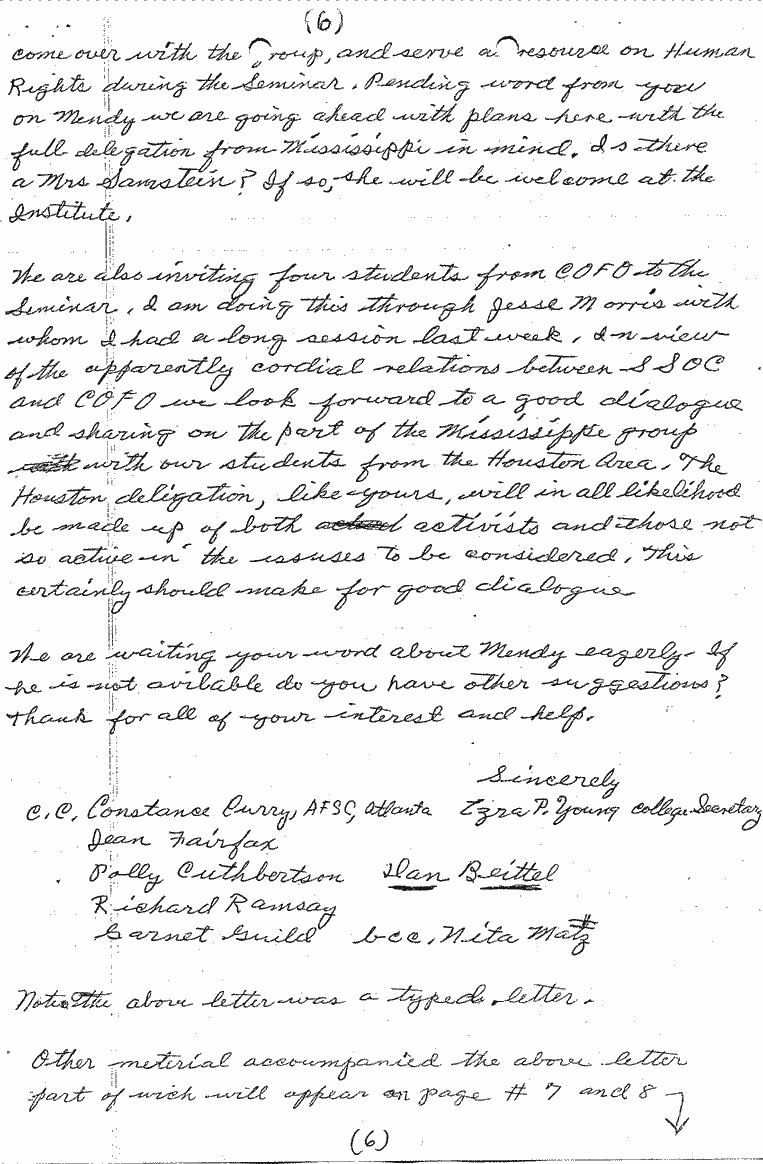 (6)
come over with the Group, and serve as resource on Human
Rights during the Seminar. Pending word from you
on Mendy we are going ahead with plans here with the
full delegation from Mississippi in mind. Is there
a Mrs Samstein? If so, she will be welcome at the
Institute.
We are also inviting four students from COFO to the
Seminar, I am doing this through Jesse Morris with
whom I had a long session last week. In view
of the apparently cordial relations between SSOC
and COFO we look forward to a good dialogue
and sharing on the part of the Mississippie group
with our students from the Houston Area. The
Houston deligation, like yours, will in all likelihood
be made up of both activists and those not
so active in the issuses to be considered. This
certainly should make for good dialogue
We are waiting your word about Mendy eagerly. If
he is not avilable do you have other suggestions?
Thank for all of your interest and help.
Sincerely
C.C. Constance Curry, AFSC, Atlanta Ezra P. Young college Secretary
Jean Fairfax
Polly Cuthbertson Dan Beittel
Richard Ramsay
Garnet Guild bcc, Nita Matz
Note the above letter was a typed letter.
Other meterial accoumpanied the above letter
part of wich will appear on page # 7 and 8
(6)